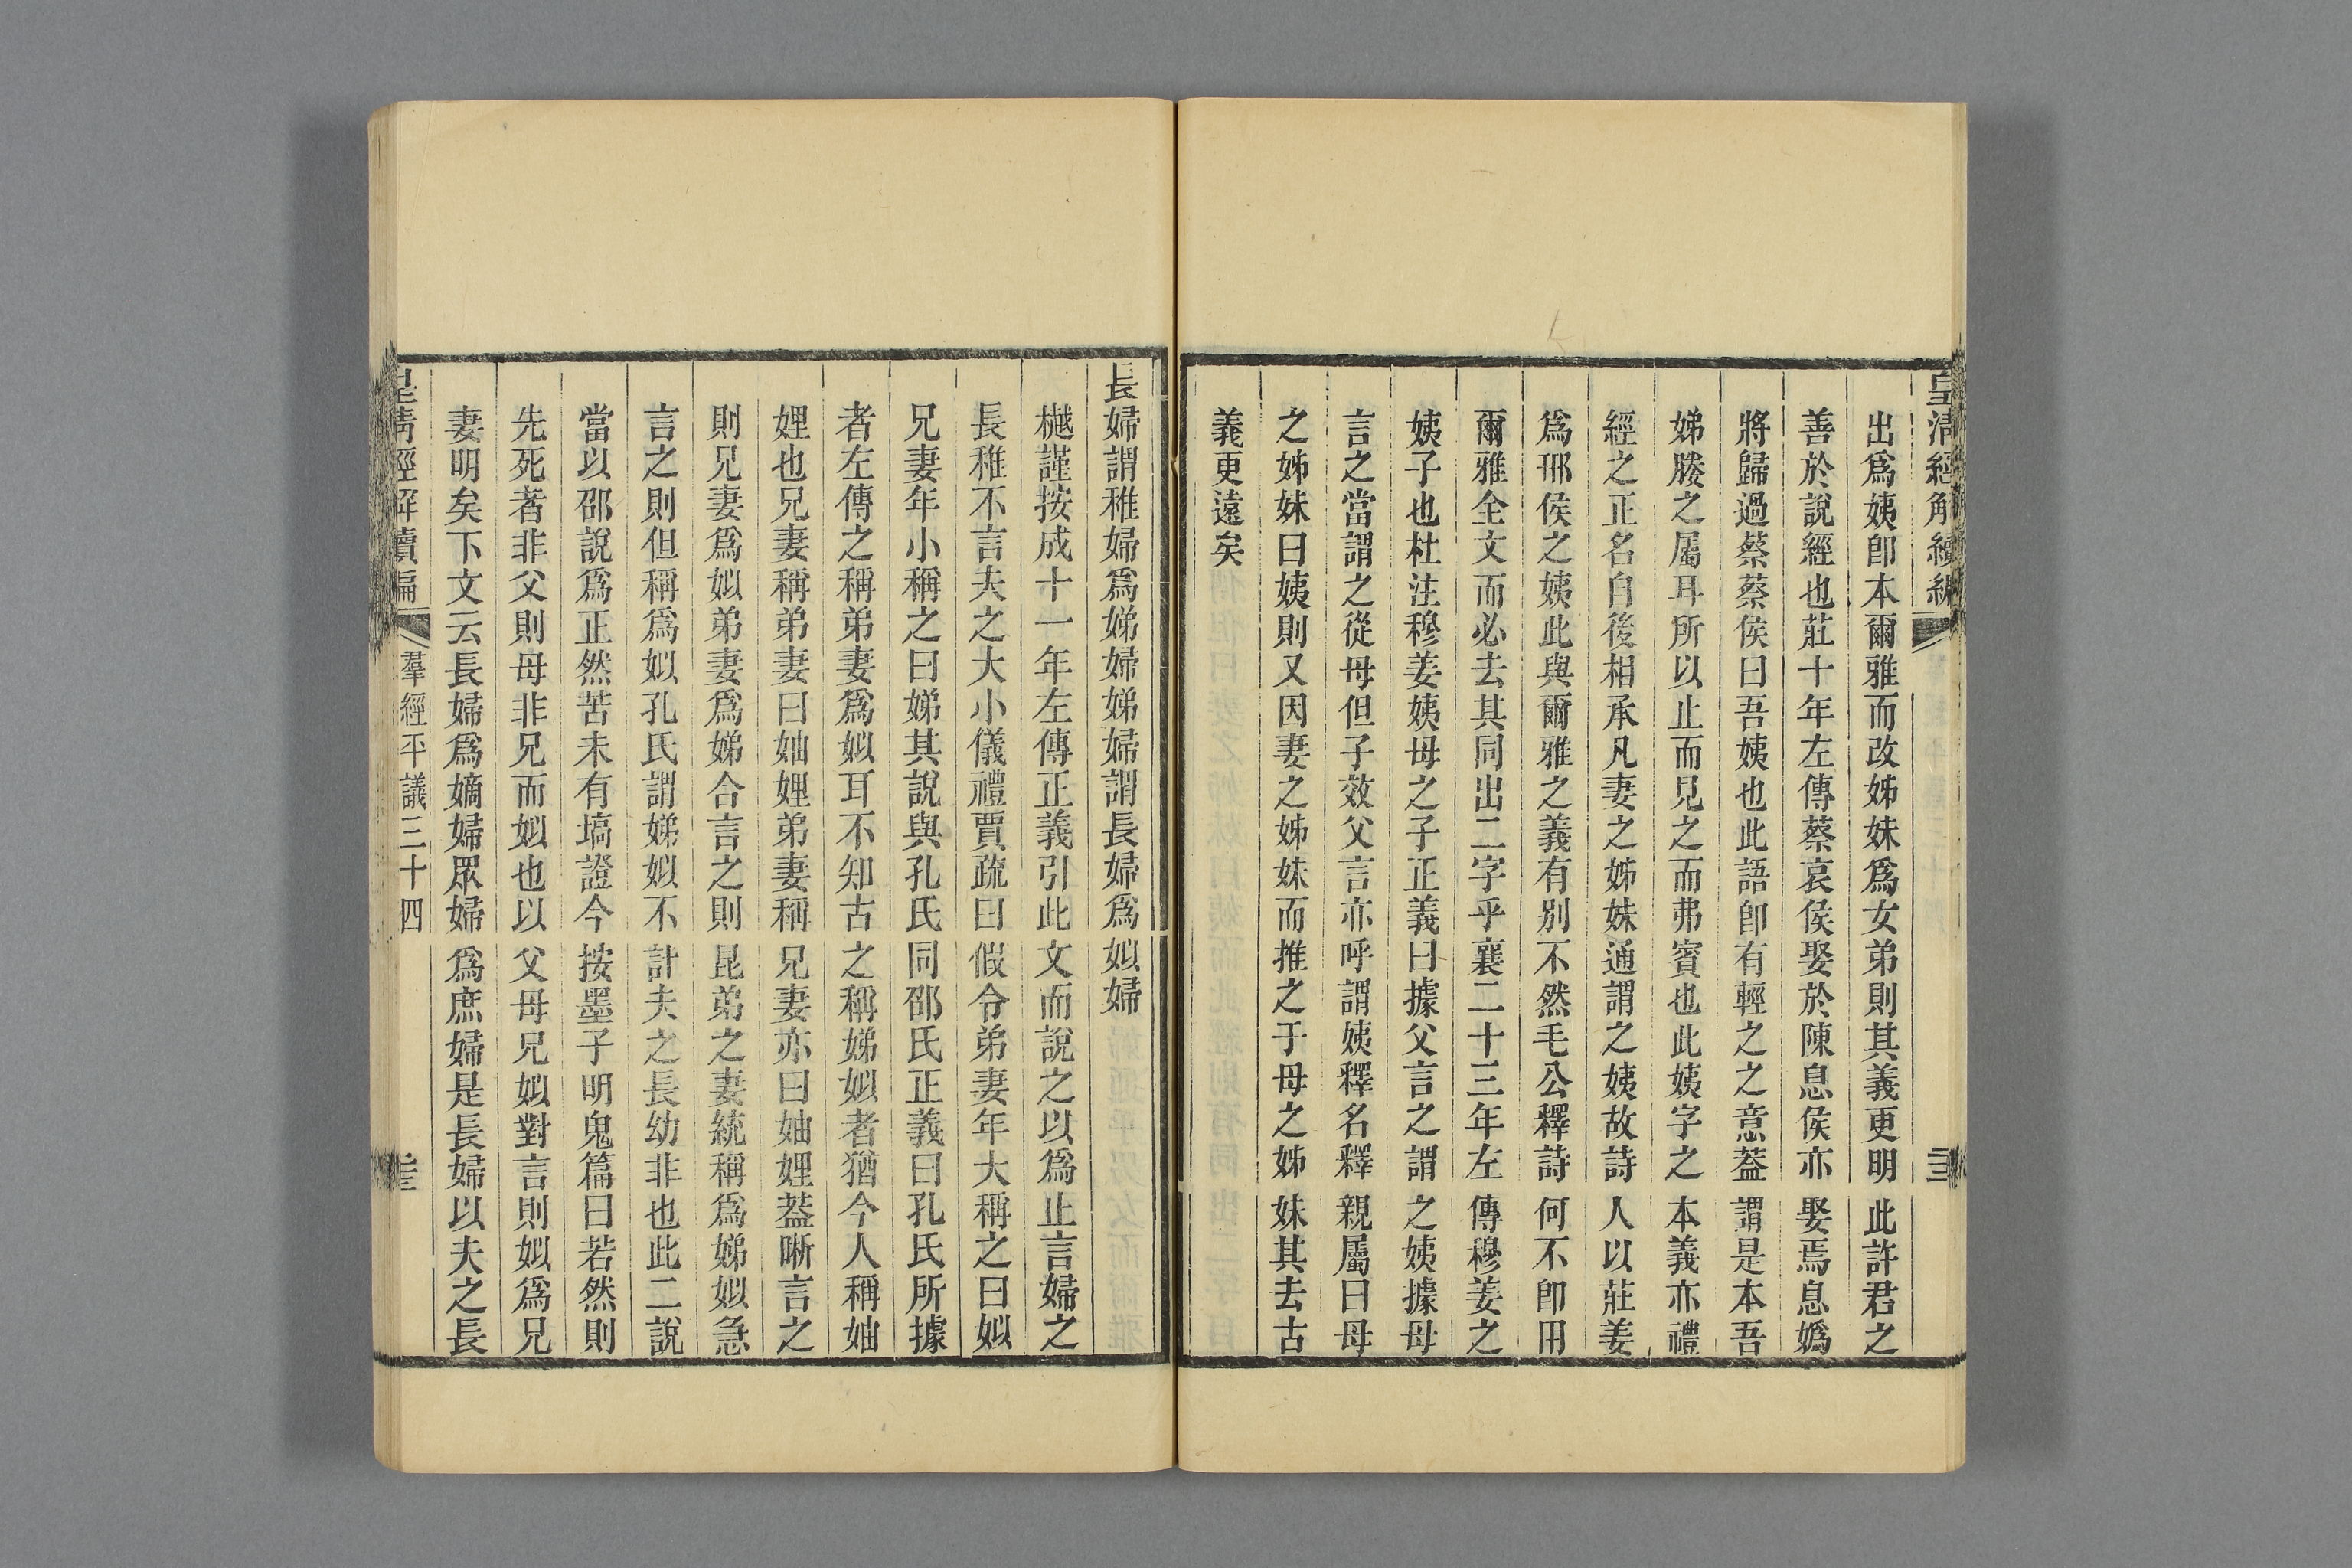 皇清經解續編
出爲姨卽本爾雅而改姊妹爲女弟則其義更明此許君之
善於說經也莊十年左傳蔡哀侯娶於陳息侯亦娶焉息嬀
將歸過蔡蔡侯曰吾姨也此語卽有輕之之意蓋謂是本吾
娣媵之屬耳所以止而見之而弗賓也此姨字之本義亦禮
經之正名自後相承凡妻之姊妹通謂之姨故詩人以莊姜
爲邢侯之姨此與爾雅之義有別不然毛公釋詩何不卽用
爾雅全文而必去其同出二字乎襄二十三年左傳穆姜之
姨子也杜注穆姜姨母之子正義曰據父言之謂之姨據母
言之當謂之從母但子效父言亦呼謂姨釋名釋親屬曰母
之姊妹曰姨則又因妻之姊妹而推之于母之姊妹其去古
義更遠矣
長婦謂稚婦爲娣婦娣婦謂長婦爲姒婦
樾謹按成十一年左傳正義引此文而說之以爲止言婦之
長稚不言夫之大小儀禮賈疏曰假令弟妻年大稱之曰姒
兄妻年小稱之曰娣其說與孔氏同邵氏正義曰孔氏所據
者左傳之稱弟妻爲姒耳不知古之稱娣姒者猶今人稱妯
娌也兄妻稱弟妻曰妯娌弟妻稱兄妻亦曰妯娌蓋晰言之
則兄妻爲姒弟妻爲娣合言之則昆弟之妻統稱爲娣姒急
言之則但稱爲姒孔氏謂娣姒不計夫之長幼非也此二說
當以邵說爲正然苦未有塙證今按墨子明鬼篇曰若然則
先死者非父則母非兄而姒也以父母兄姒對言則姒爲兄
妻明矣下文云長婦爲嫡婦眾婦爲庶婦是長婦以夫之長
皇清經解續編 羣經平議三十四